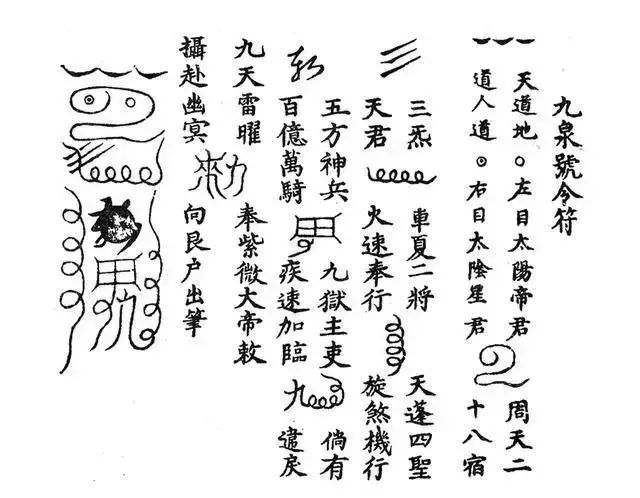 九泉號令符
天道地 ○ 左目太陽帝君 周天二
道人道 ⊙ 右目太陰星君 十八宿
三炁 車夏二將 天蓬四聖
天君 火速奉行 旋煞機行
五方神兵 九獄主吏 倘有
百億萬騎 疾速加臨 違戾
九天雷曜 奉紫微大帝敕
攝赴幽冥 向艮户出筆